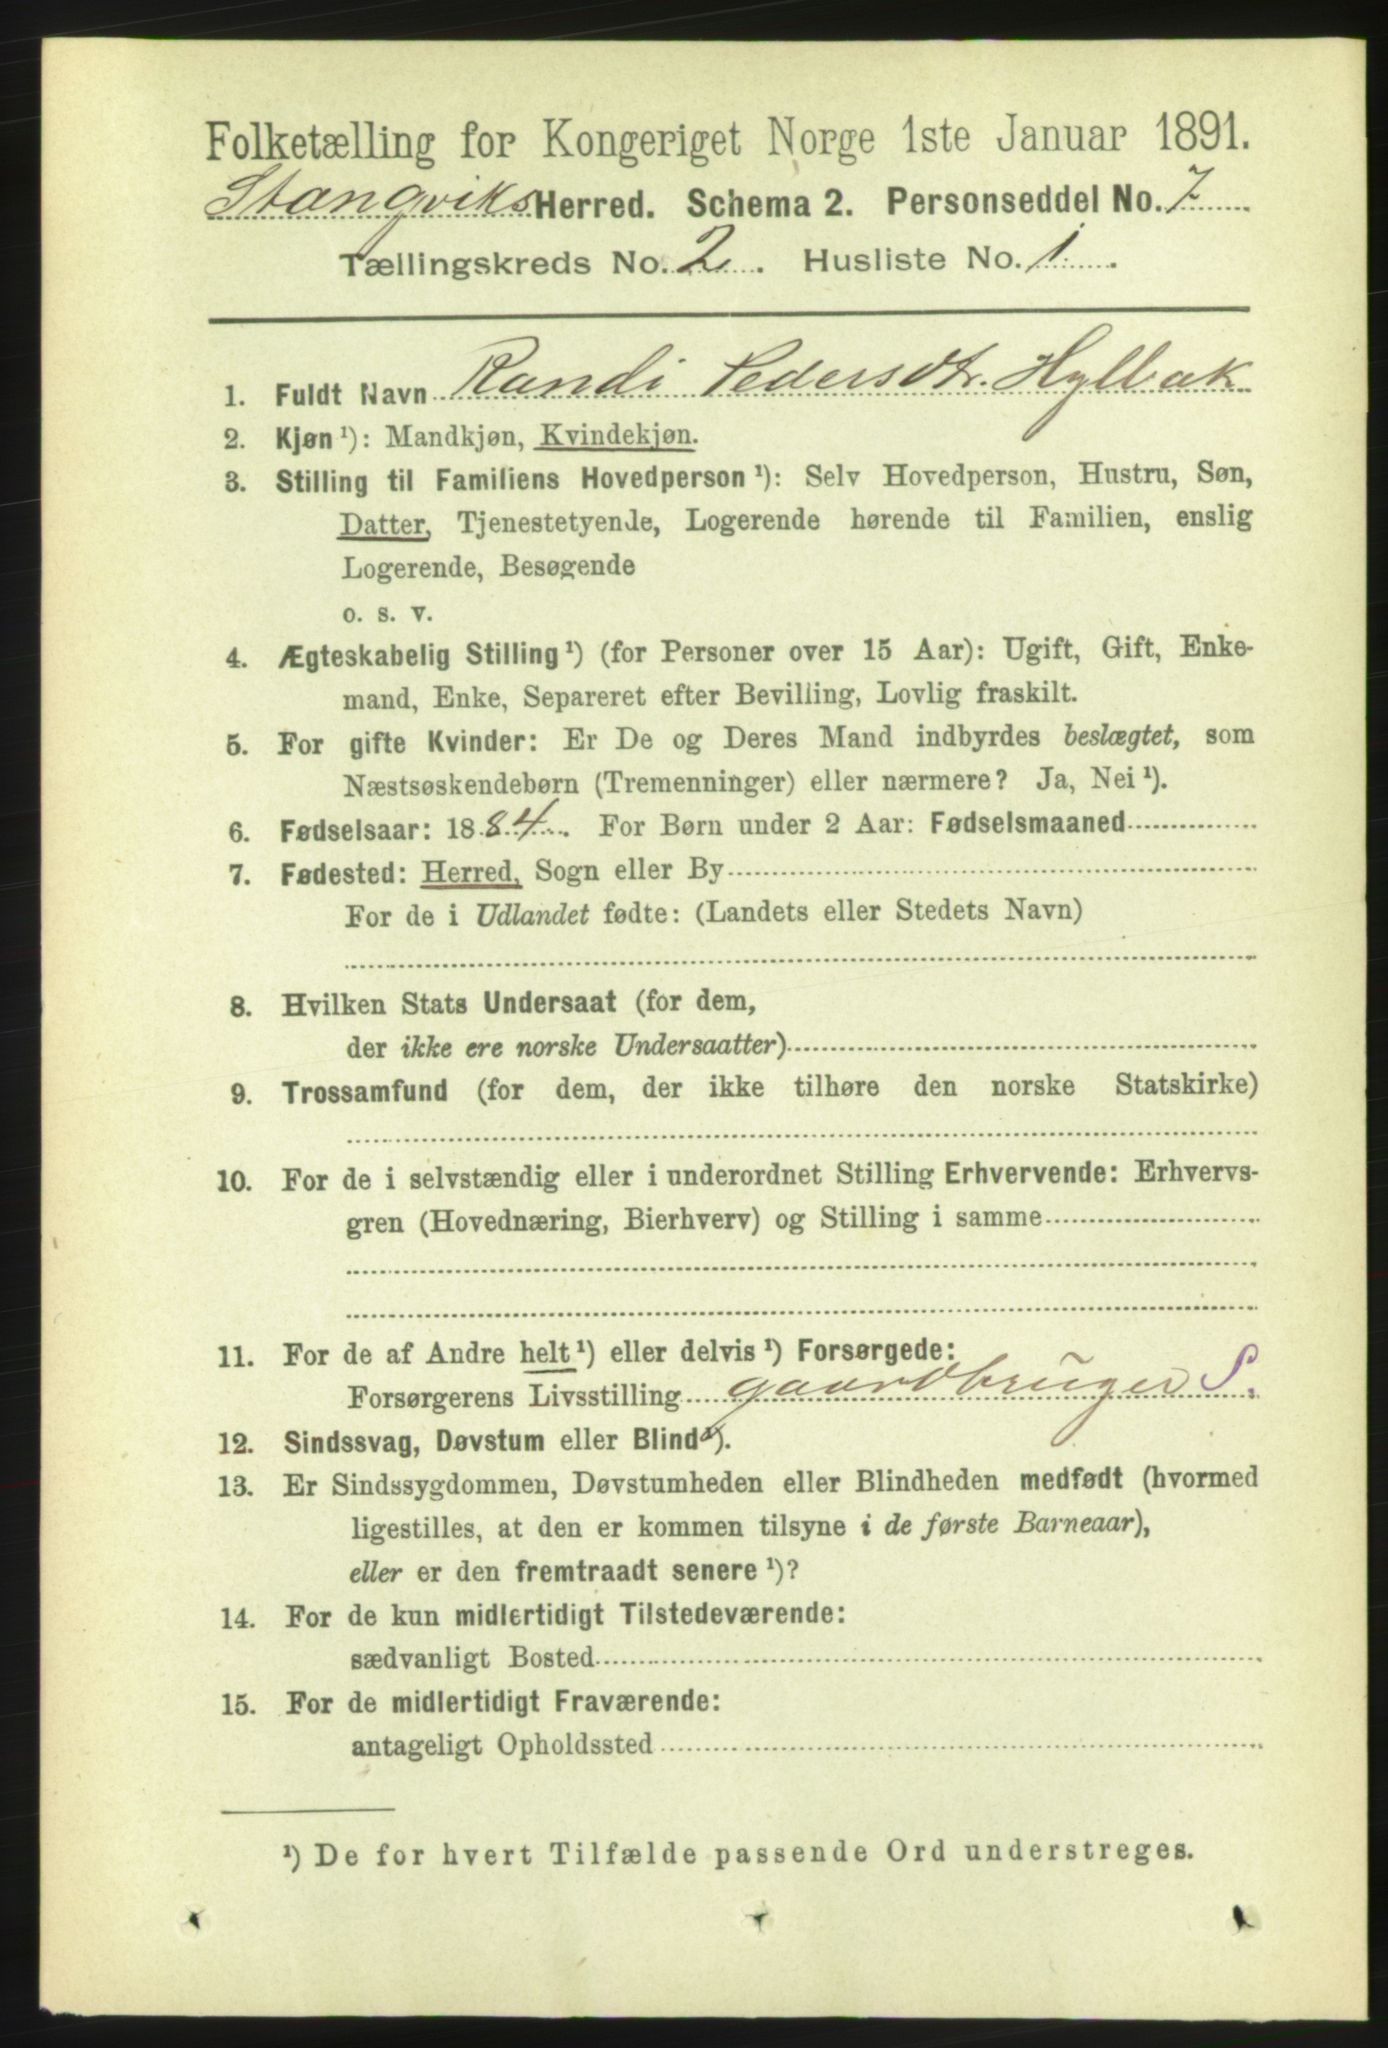 Folketælling for Kongeriget Norge 1ste Januar 1891.
Stangviks Herred. Schema 2. Personseddel No. 7
Tællingskreds No. 2. Husliste No. 1
1. Fuldt Navn Randi Pedersdtr. Hylbak
2. Kjøn ¹): Mandkjøn, Kvindekjøn.
3. Stilling til Familiens Hovedperson ¹): Selv Hovedperson, Hustru, Søn,
Datter, Tjenestetyende, Logerende hørende til Familien, enslig
Logerende, Besøgende
o. s. v.
4. Ægteskabelig Stilling ¹) (for Personer over 15 Aar): Ugift, Gift, Enke-
mand, Enke, Separeret efter Bevilling, Lovlig fraskilt.
5. For gifte Kvinder: Er De og Deres Mand indbyrdes beslægtet, som
Næstsøskendebørn (Tremenninger) eller nærmere? Ja, Nei ¹).
6. Fødselsaar: 1884. For Børn under 2 Aar: Fødselsmaaned
7. Fødested: Herred, Sogn eller By
For de i Udlandet fødte: (Landets eller Stedets Navn)
8. Hvilken Stats Undersaat (for dem,
der ikke ere norske Undersaatter)
9. Trossamfund (for dem, der ikke tilhøre den norske Statskirke)
10. For de i selvstændig eller i underordnet Stilling Erhvervende: Erhvervs-
gren (Hovednæring, Bierhverv) og Stilling i samme
11. For de af Andre helt ¹) eller delvis ¹) Forsørgede:
Forsørgerens Livsstilling gaardbruger S.
12. Sindssvag, Døvstum eller Blind ¹).
13. Er Sindssygdommen, Døvstumheden eller Blindheden medfødt (hvormed
ligestilles, at den er kommen tilsyne i de første Barneaar),
eller er den fremtraadt senere ¹)?
14. For de kun midlertidigt Tilstedeværende:
sædvanligt Bosted
15. For de midlertidigt Fraværende:
antageligt Opholdssted
¹) De for hvert Tilfælde passende Ord understreges.